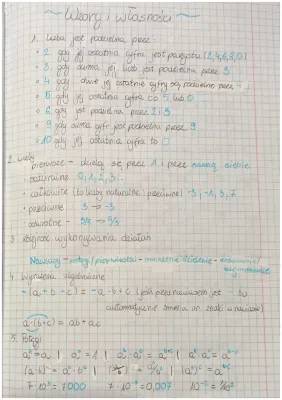 ~ Wzory i własności ~
1. Liczba jest podzielna przez:
• 2 gdy jej ostatnia cyfra jest parzysta (2,4,6,8,0)
• 3 gdy suma jej liczb jest podzielna przez 3
• 4 gdy dwie jej ostatnie cyfry są podzielne przez 4
• 5 gdy jej ostatnia cyfra to 5 lub 0
• 6 gdy jest podzielna przez 2 i 3
• 9 gdy suma cyfr jest podzielna przez 9
• 10 gdy jej ostatnia cyfra to 0
2. Liczby
• pierwsze - dzielą się przez 1 i przez samą siebie
• naturalne 0, 1, 2, 3...
• całkowite (to liczby naturalne i przeciwne) -3, -1, 3, 7
• przeciwne 3 → -3
• odwrotne -
3. Kolejność wykonywania działań
Nawiasy - potęgi/pierwiastki - mnożenie dzielenie - dodawanie/odejmowanie
4. Wyrażenia algebraiczne
-(a+b-c) = -a-b+c (jeśli przed nawiasem jest - to
automatycznie zmienia on znaki w nawiasie)
a·(b+c) = ab + ac
5. Potęgi
7·10³ = 7000 7·10⁻³ = 0,007